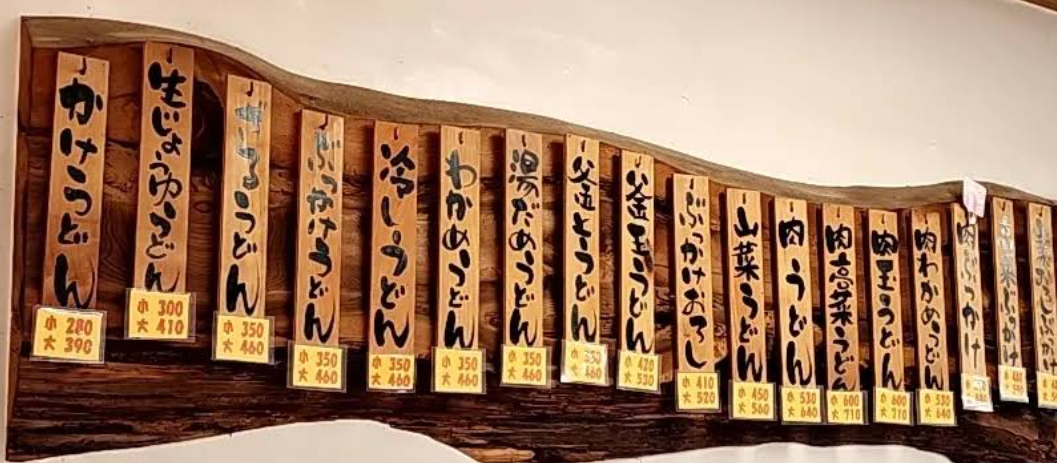 かけうどん
小 280
大 390
生じょうゆうどん
小 300
大 410
ざるうどん
小 350
大 460
ぶっかけうどん
小 350
大 460
冷しうどん
小 350
大 460
わかめうどん
小 350
大 460
湯だめうどん
小 350
大 460
釜上うどん
小 350
大 460
釜玉うどん
小 420
大 530
ぶっかけおろし
小 410
大 520
山菜うどん
小 450
大 560
肉うどん
小 530
大 640
肉高菜うどん
小 600
大 710
肉玉うどん
小 600
大 710
肉わかめうどん
小 530
大 640
肉ぶっかけ
高菜ぶっかけ